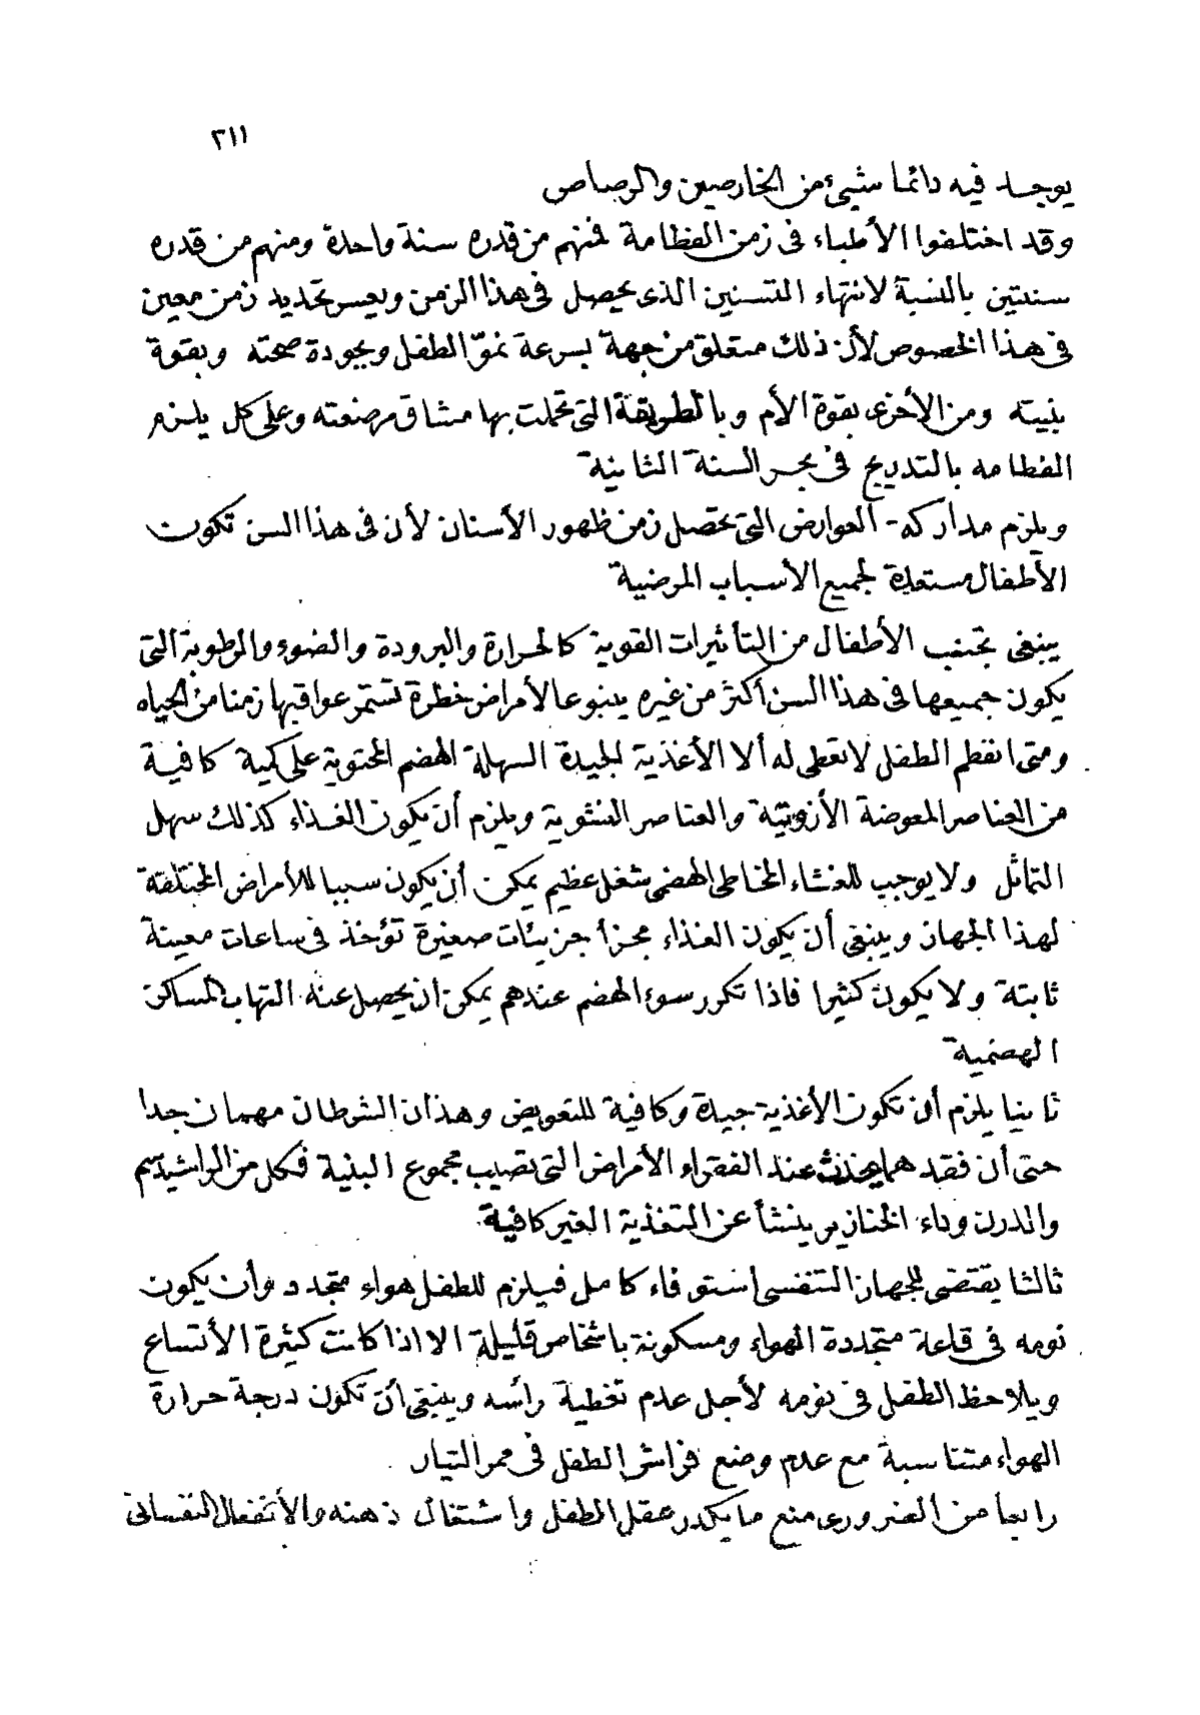 ٢١١
يوجد فيه دائما شيئ من الخارصين والرصاص
وقد اختلفوا الأطباء فى زمن الفظامة فمنهم من قدره سنة واحدة ومنهم من قدره
سنتين بالنسبة لانتهاء التسنين الذى يحصل فى هذا الزمن ويعسر تحديد زمن معين
فى هذا الخصوص لأن ذلك متعلق من جهة بسرعة نموّ الطفل وبجودة صحته وبقوة
بنيته ومن الأخرى بقوة الأم وبالطريقة التى تحملت بها مشاق مرضعته وعلى كل يلزم
الفطامه بالتدريج فى بحر السنة الثانية
ويلزم مداركة العوارض التى تحصل زمن ظهور الأسنان لأن فى هذا السن تكون
الأطفال مستعدة لجميع الأسباب المرضية
ينبغى تجنب الأطفال من التأثيرات القوية كالحرارة والبرودة والضوء والرطوبة التى
يكون جميعها فى هذا السن أكثر من غيره ينبوعا لأمراض خطرة تستمر عواقبها زمنا من الحياه
ومتى انفطم الطفل لا تعطى له ألا الأغذية الجيدة السهلة الهضم المحتوية على كمية كافية
من العناصر المعوضة الأزوتية والعناصر النشوية ويلزم أن يكون الغذاء كذلك سهل
التماثل ولا يوجب للغشاء المخاطى الهضمى شغل عظيم يمكن أن يكون سببا للأمراض المختلفة
لهذا الجهاز وينبغى أن يكون الغذاء مجزأ جزيئات صغيرة تؤخذ فى ساعات معينة
ثابتة ولا يكون كثيرا فاذا تكرر سوء الهضم عندهم يمكن ان يحصل عنه التهاب المساكن
الهضمية
ثانيا يلزم أن تكون الأغذية جيدة وكافية للتعويض وهذان الشرطان مهمان جدا
حتى أن فقدهما يحدث عند الفقراء الأمراض التى تصيب مجموع البنية فكل من الراشيتسم
والدرن وداء الخنازير ينشأ عن التغذية الغير كافية
ثالثا يقتضى للجهاز التنفسى استوفاء كامل فيلزم للطفل هواء متجدد وأن يكون
نومه فى قاعة متجددة الهواء ومسكونة باشخاص قليلة الا اذا كانت كثيرة الأتساع
ويلاحظ الطفل فى نومه لأجل عدم تغطية رأسه وينبغى أن تكون درجة حرارة
الهواء متناسبة مع عدم وضع فراش الطفل فى ممر التيار
رابعا من الضرورى منع ما يكدر عقل الطفل واشتغال ذهنه والأنفعال النفسانى